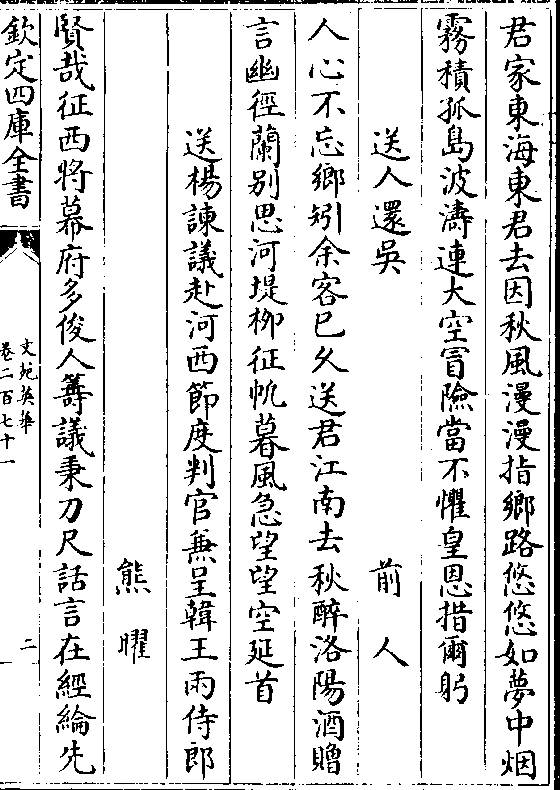 君家東海東君去因秋風漫漫指鄉路悠悠如夢中烟
霧積孤島波濤連大空冒險當不懼皇恩措爾躬
送人還吳 前人
人心不忘鄉矧余客已久送君江南去秋醉洛陽酒贈
言幽徑蘭别思河堤栁征帆暮風急望望空延首
送楊諫議赴河西節度判官兼呈韓王兩侍郎
熊曜
賢哉征西將幕府多俊人籌議秉刀尺話言在經綸先
欽定四庫全書
文苑英華
卷二百七十一
二